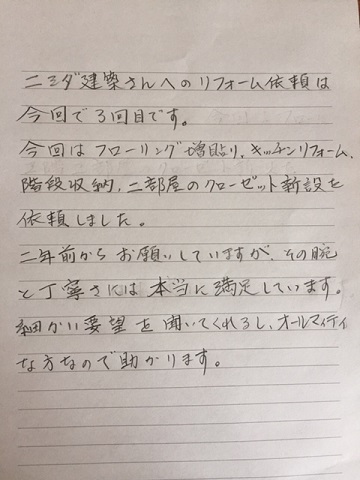 ニシダ建築さんへのリフォーム依頼は
今回で3回目です。
今回はフローリング増貼り、キッチンリフォーム、
階段収納、二部屋のクローゼット新設を
依頼しました。
二年前からお願いしていますが、その腕
と丁寧さには本当に満足しています。
細かい要望を聞いてくれるし、オールマイティ
な方なので助かります。